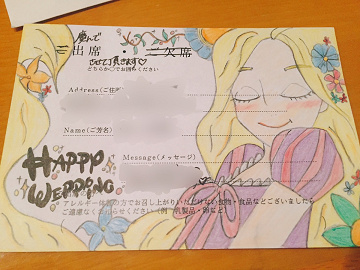 慶んで
ご出席 ・ ご欠席
させて頂きます♡
どちらか○でお囲みください
Address(ご住
Name(ご芳名)
Message(メッセージ)
HAPPY
WEDDING
アレルギー体質の方でお召し上がりいただけない食物・食品などございましたら
ご遠慮なくお知らせください(例 乳製品・卵など)